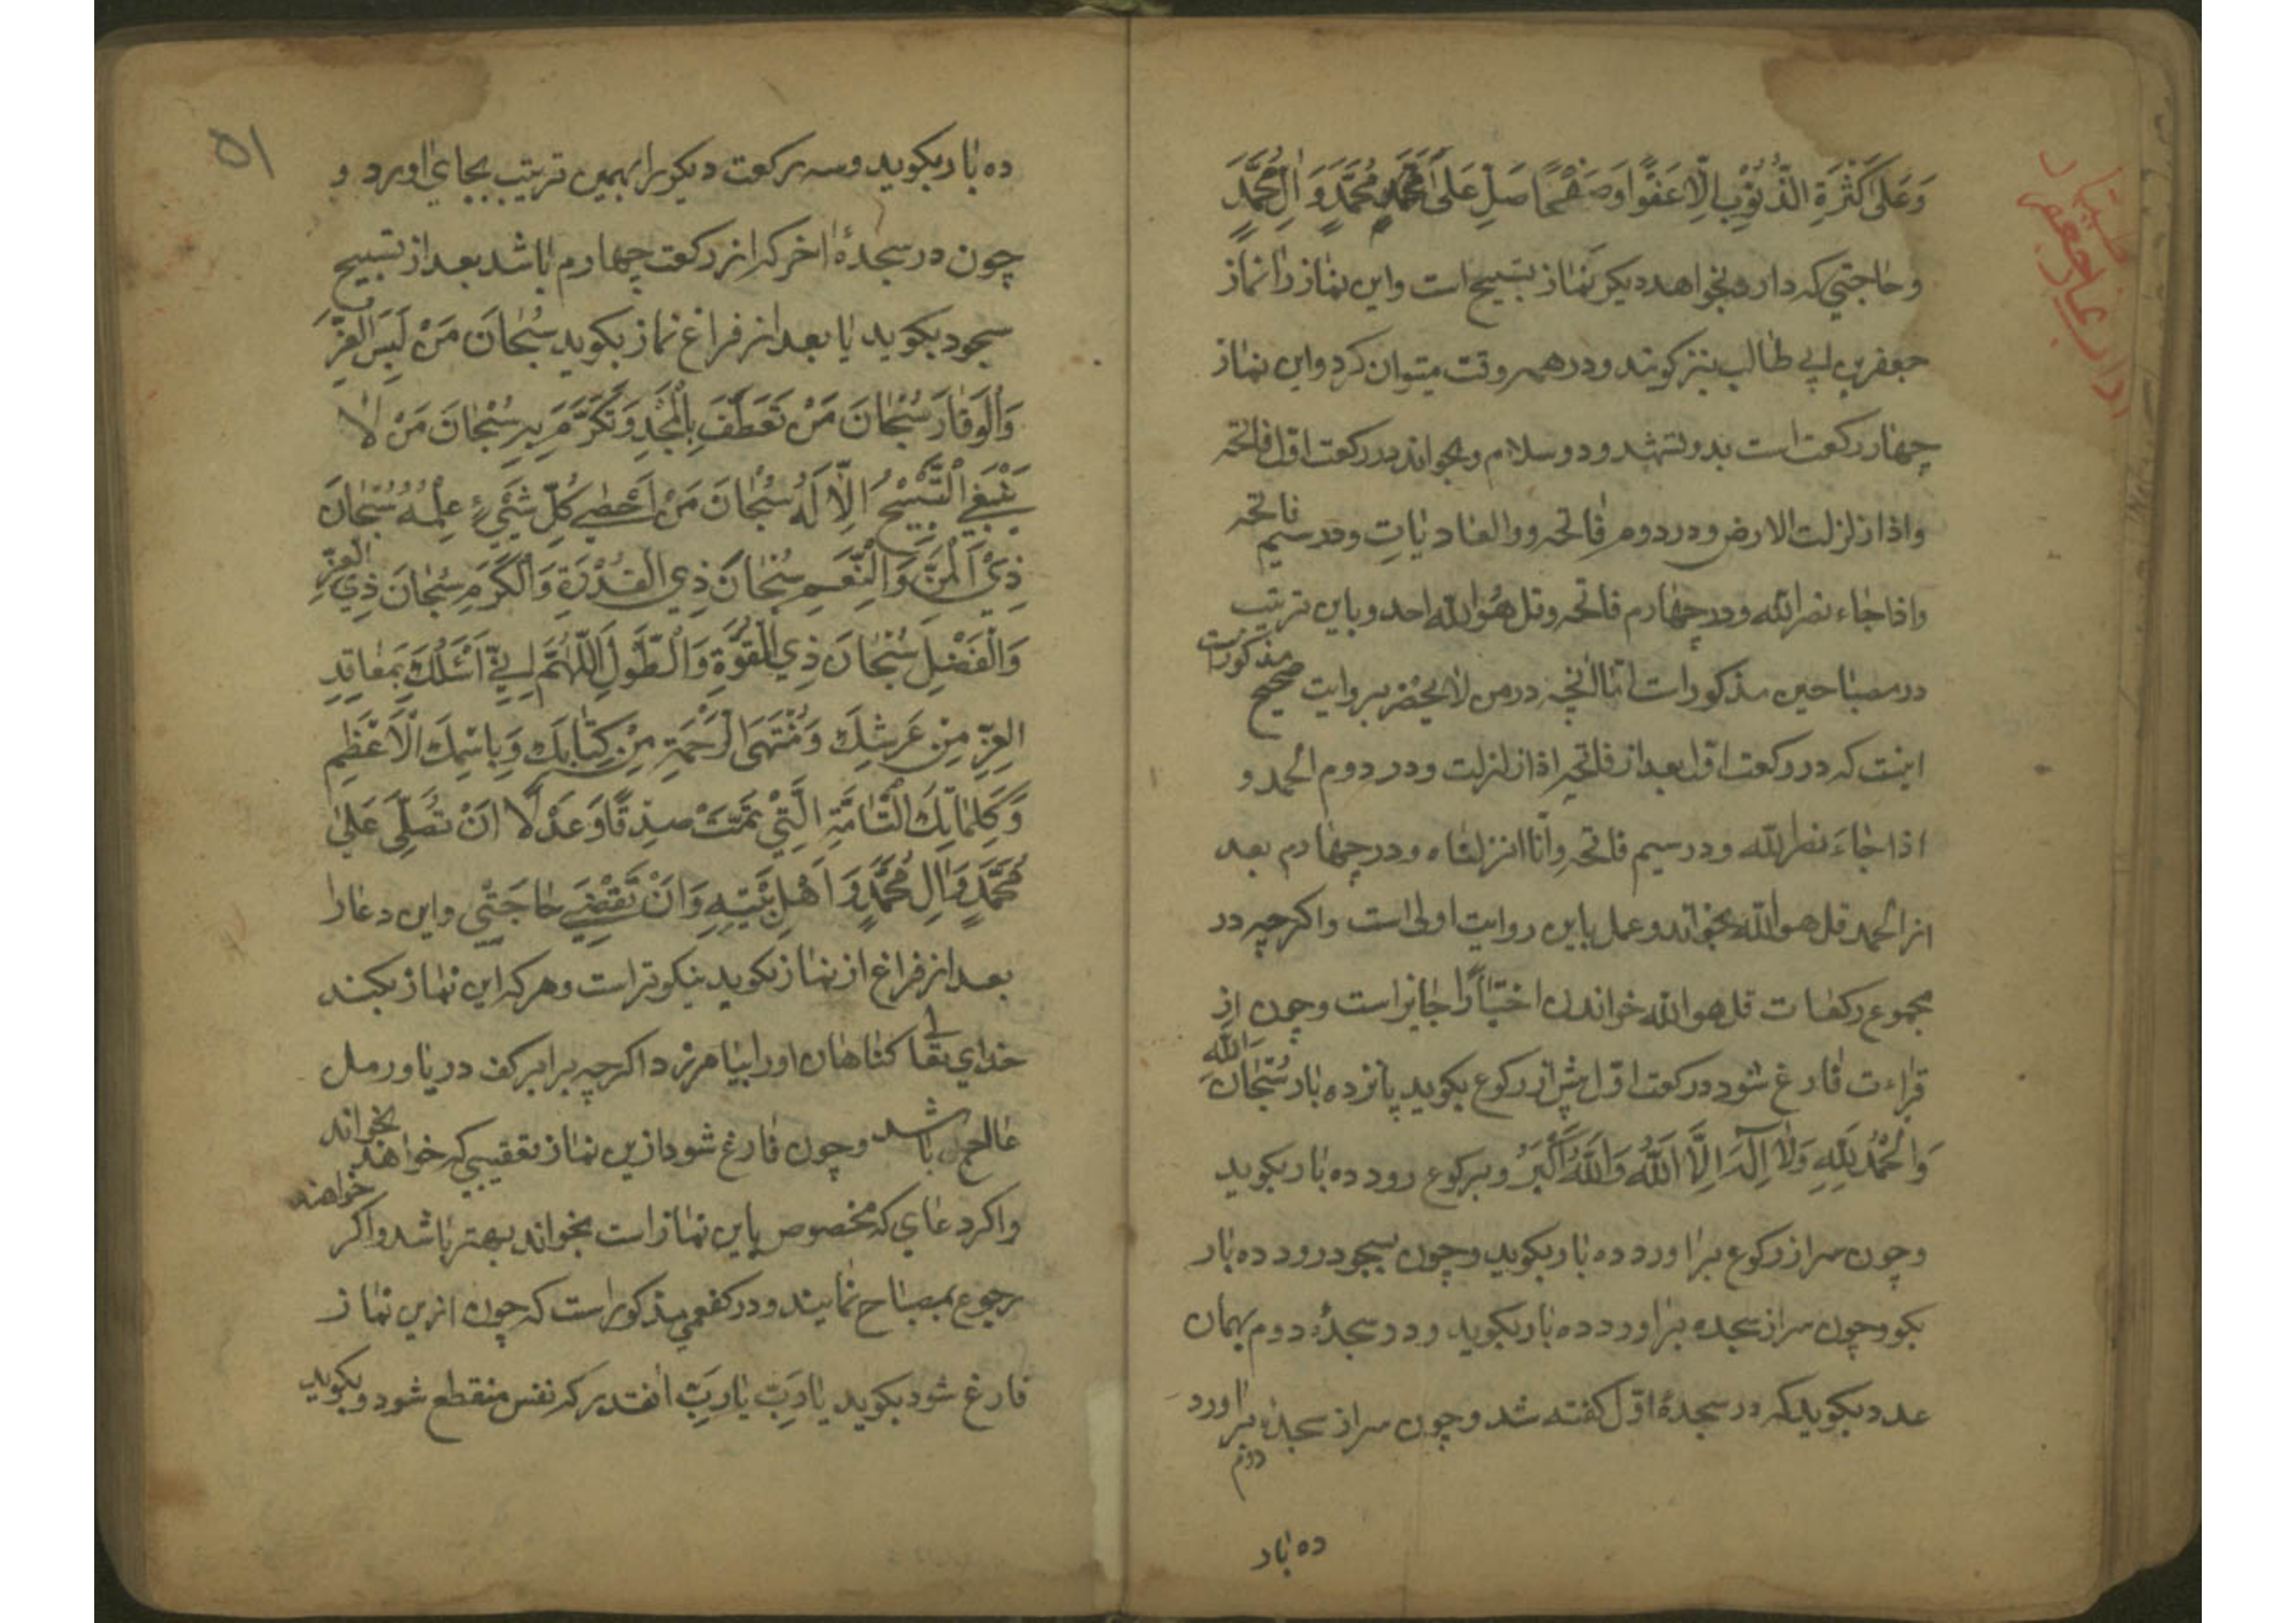 وَعَلیٰ كَثْرَةِ الذُّنُوْبِ اِلّا عَفْوًا وَصَفْحًا صَلِ عَلیٰ مُحَمَّدٍ وَاٰلِ مُحَمَّدٍ
وحاجتي كه دارد بخواهد ديكر نماز تسبيح است واين نماز را نماز
جعفر بن ابي طالب نيز كويند ودر همه وقت ميتوان كرد واين نماز
چهار ركعت است بدو تشهد ودو سلام وبخواند در ركعت اول فاتحه
واذا زلزلت الارض ودر دوم فاتحه ووالعاديات ودر سيم فاتحه
واذا جاء نصر الله ودر چهارم فاتحه وقل هُوَ الله احد وباين ترتيب
در مصباحين مذكور است اما انچه در من لا يحضر بروايت صحيح مذكور است
اينست كه در ركعت اول بعد از فاتحه اذا زلزلت ودر دوم الحمد و
اذا جاءَ نصر الله ودر سيم فاتحه وانّا انزلناه ودر چهارم بعد
از الحمد قل هو الله بخواند وعمل باين روايت اولی است واكرچه در
مجموع ركعات قل هو الله خواندن اختيارًا جايز است وچون از
قراءت فارغ شود در ركعت اول پيش از ركوع بكويد پانزده بار سُبْحَانَ اللهِ
وَالْحَمْدُ لِلّٰهِ وَلَا اِلٰهَ اِلَّا اللّٰهُ وَاللّٰهُ اَكْبَرُ وبركوع رود ده بار بكويد
وچون سر از ركوع براورد ده بار بكويد وچون بسجود رود ده بار
بكو وچون سر از سجده براورد ده بار بكويد ودر سجدهٔ دوم بهمان
عدد بكويد كه در سجدهٔ اوّل كفته شد وچون سر از سجدهٔ دوم براورد
ده بار
۵۱
ده بار بكويد وسه ركعت ديكر را بهمين ترتيب بجاي اورد و
چون در سجدهٔ اخر كه از ركعت چهارم باشد بعد از تسبيح
سجود بكويد يا بعد از فراغ نماز بكويد سُبْحَانَ مَنْ لَبِسَ العِزَّ
وَالْوَقَارَ سُبْحَانَ مَنْ تَعَطَّفَ بِالْمَجْدِ وَتَكَرَّمَ بِهِ سُبْحَانَ مَنْ لَا
يَنْبَغِي التَّسْبِيْحُ اِلَّا لَهُ سُبْحَانَ مَنْ اَحْصٰی كُلَّ شَيْءٍ عِلْمُهُ سُبْحَانَ
ذِيْ الْمَنِّ وَالنِّعَمِ سُبْحَانَ ذِي الْقُدْرَةِ وَالْكَرَمِ سُبْحَانَ ذِي العِزِّ
وَالْفَضْلِ سُبْحَانَ ذِي الْقُوَّةِ وَالطَّوْلِ اَللّٰهُمَّ اِنِّيْ اَسْئَلُكَ بِمَعَاقِدِ
العِزِّ مِنْ عَرْشِكَ وَمُنْتَهَی الرَّحْمَةِ مِنْ كِتَابِكَ وَبِاسْمِكَ الْاَعْظَمِ
وَكَلِمَاتِكَ التَّامَّةِ الَّتِيْ تَمَّتْ صِدْقًا وَعَدْلًا اَنْ تُصَلِّيَ عَلیٰ
مُحَمَّدٍ وَاٰلِ مُحَمَّدٍ وَاَهْلِ بَيْتِهِ وَاَنْ تَقْضِيَ حَاجَتِي واين دعا را
بعد از فراغ از نماز بكويد نيكوتر است وهر كه اين نماز بكند
خداي تعالی كناهان اورا بيامرزد اكرچه برابر كف دريا ورمل
عالج باشد وچون فارغ شود ازين نماز تعقيبي كه خواهد بخواند
واكر دعاي كه مخصوص باين نماز است بخواند بهتر باشد واكر خواهند
رجوع بمصباح نمايند ودر كفعمي مذكور است كه چون ازين نماز
فارغ شود بكويد يا رَبِّ يا رَبِّ انقدر كه نفس منقطع شود وبكويد